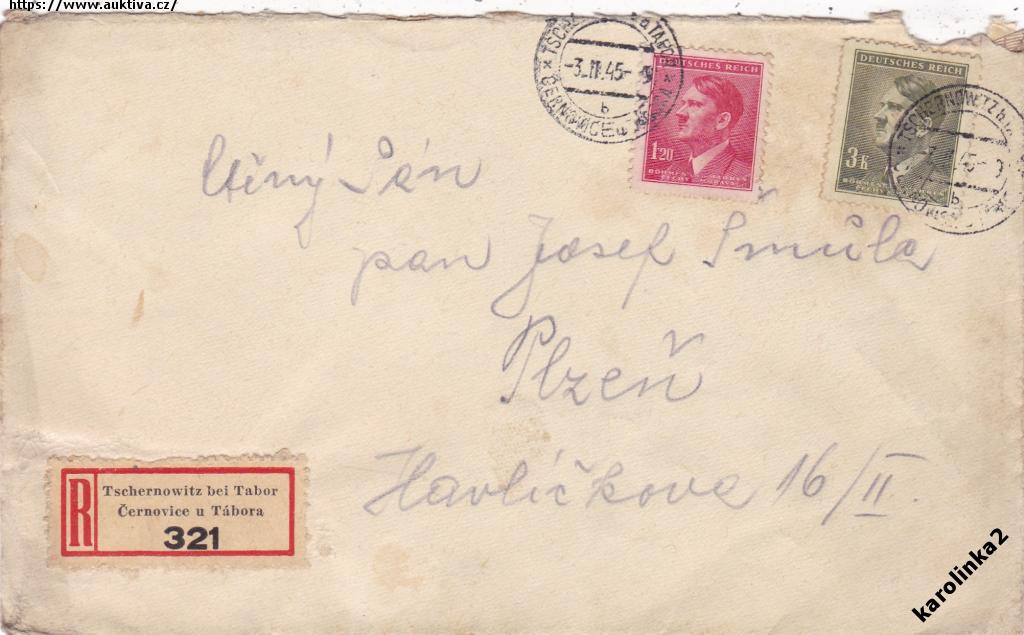 https://www.auktiva.cz/
-3.III.45-
ČERNOVICE u TÁBORA
b
DEUTSCHES REICH
1·20
BÖHMEN U. MÄHREN
ČECHY A MORAVA
DEUTSCHES REICH
3 K
TSCHERNOWITZ b.
b
Ctěný Pán
pan Josef Šmůla
Plzeň
Havlíčkova 16/II.
R
Tschernowitz bei Tabor
Černovice u Tábora
321
karolinka2